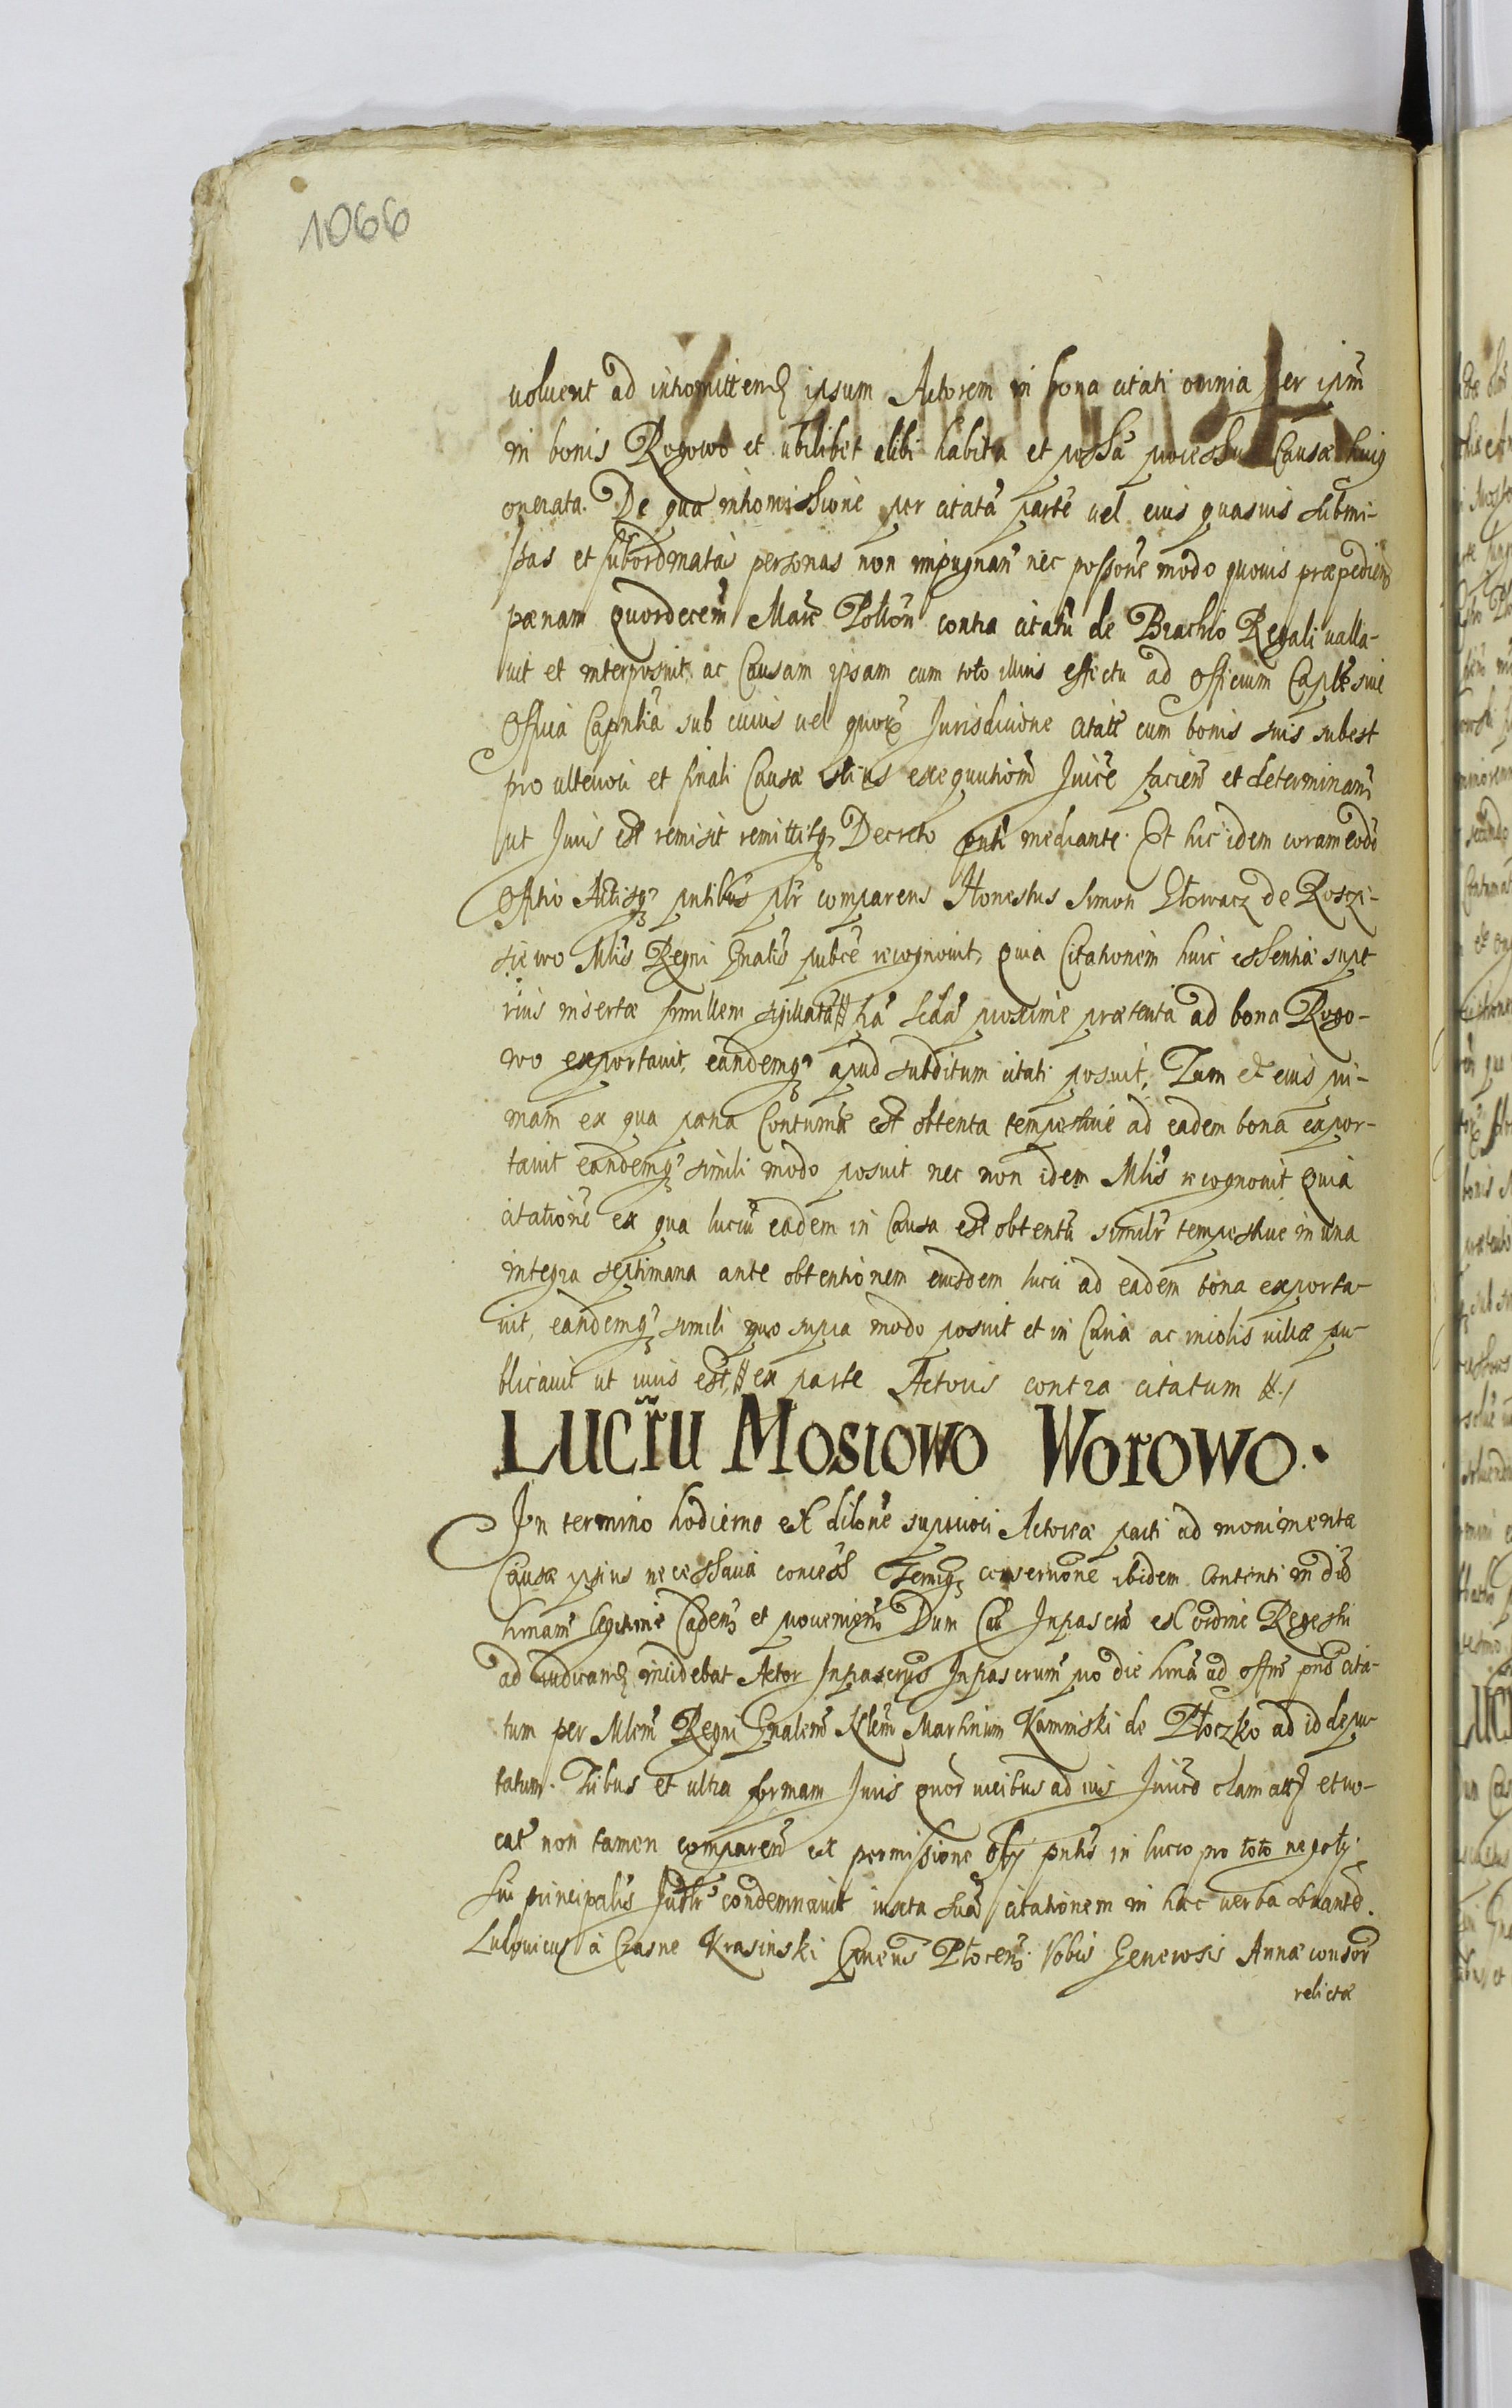 1066
voluent ad intromittend ipsum Actorem in bona citati omnia per ipm
in bonis Rogowo et ubilibet alibi habita et possa processu Causæ huiq
onerata. De qua intromissione per citatã parte vel eius quasuis submi-
ssas et subordinatas personas non impugnan nec possone modo quouis præpedien
pænam quordecem Marc Pollon contra citatũ de Brachio Regali valla-
uit et interposuit ac Causam ipsam cum toto illius effectu ad officium Caplẽ siue
Officia Capnlia sub cuius vel quorz Jurisdicione citatẽ cum bonis suis subest
pro ulteriori et finali Causæ istius exequutiom Juice facien et determinan
ut Juris est remisit remittitq Decreto pnti mediante. Et hic idem coram eodẽ
Offtio Actisq pntibus plr comparens Honestus Simon de Roszi-
siewo Mlis Regni Gnalis publce recognouit, quia Citationem huic essentiæ supe
rius insertæ similem sigillatã pã sedã proxime præterita ad bona Rogo-
wo exportauit, eandemq apud subditum citati posuit, Tum et eius pri-
mam ex qua pæna Contumã est obtenta tempestiue ad eadem bona expor-
tauit eandemq simili modo posuit nec non idem Mlis recognouit quia
citatione ex qua lucrũ eadem in Causa est obtentũ similr tempestiue in una
integra septimana ante obtentionem eiusdem lucri ad eadem bona exporta-
uit, eandemq simili quo supra modo posuit et in Curia ac incolis villæ pu-
blicauit ut iuris est, ex parte Actoris contra citatum
Lucru Mosiowo Worowo.
In termino hodierno ex dilone superiori Actoreæ parti ad monimenta
Causæ ipsius necessaria concess Temiq conseruone ibidem Contenti in diẽ
hrnam legitime Caden et prouenien Dum Cau Inpascrã ex ordine Regestri
ad iudicand incidebat Actor Inpascrps Inpascrum pro die hrnã ad offm pns cita-
tum per Mlem Regni Gnalem Martinum Kaminski de Płoczko ad id depu-
tatum. Tribus et ultra formam Juris quor vicibus ad ius Juicẽ clamatt et vo-
cat non tamen comparen ex permissione offy pntis in lucro pro toto negoty
sui principalis Judlr condemnauit iuxta suã citationem in hæc verba emanatã.
Ludouicus à Crasne Krasinski Ploceń. Vobis Generosis Annæ
relictæ